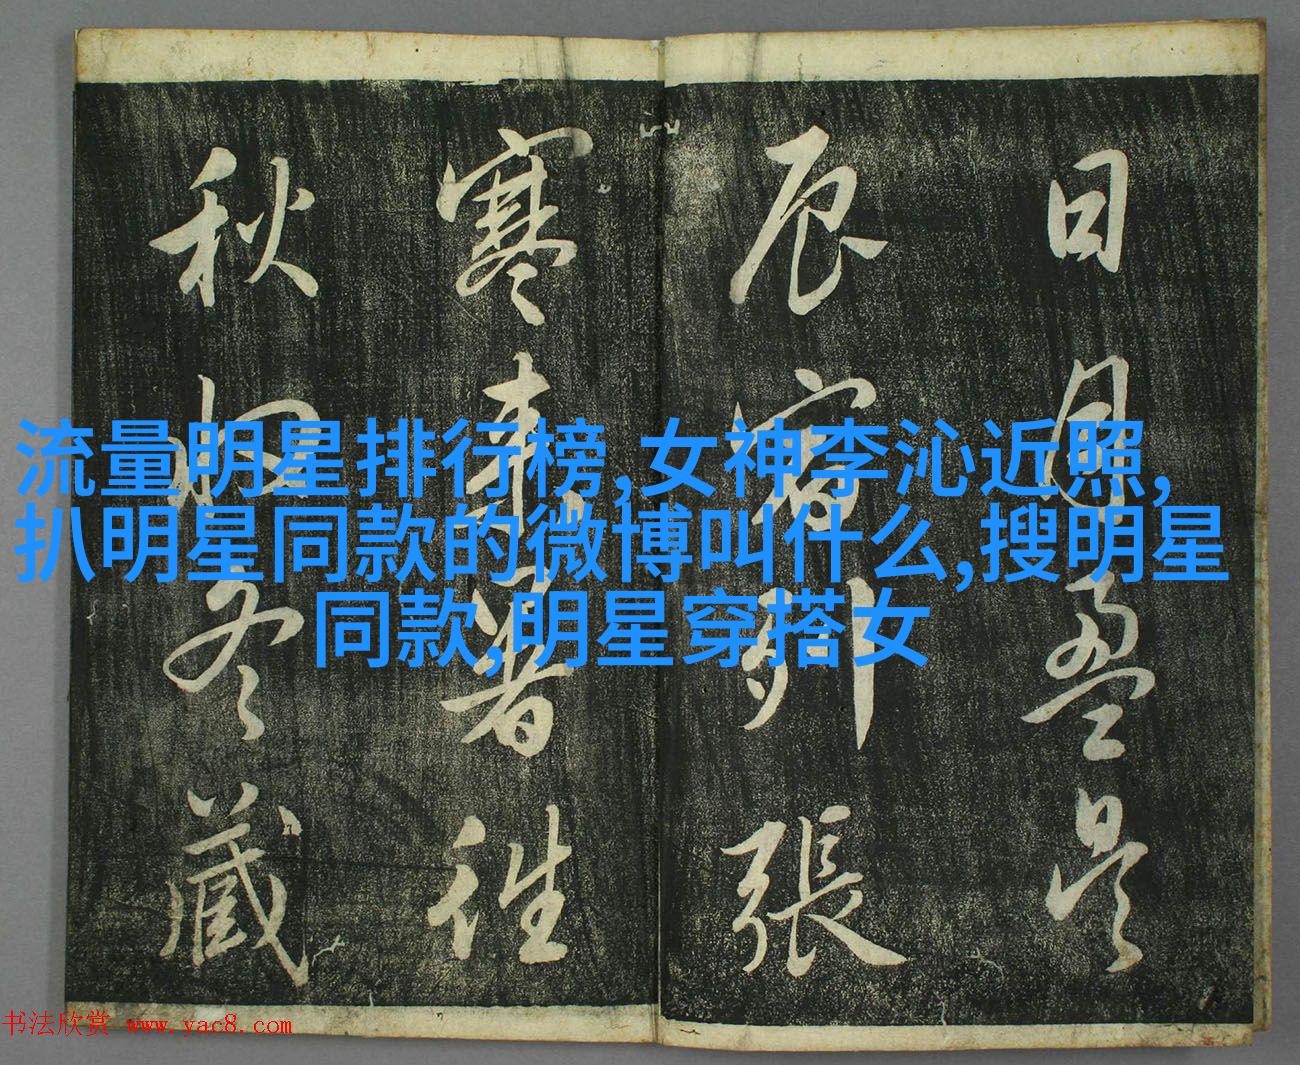 日月盈昃
辰宿列張
寒来暑往
秋收冬藏
流量明星排行榜,女神李沁近照,
扒明星同款的微博叫什么,搜明星
同款,明星穿搭女
书法欣赏 www.yac8.com